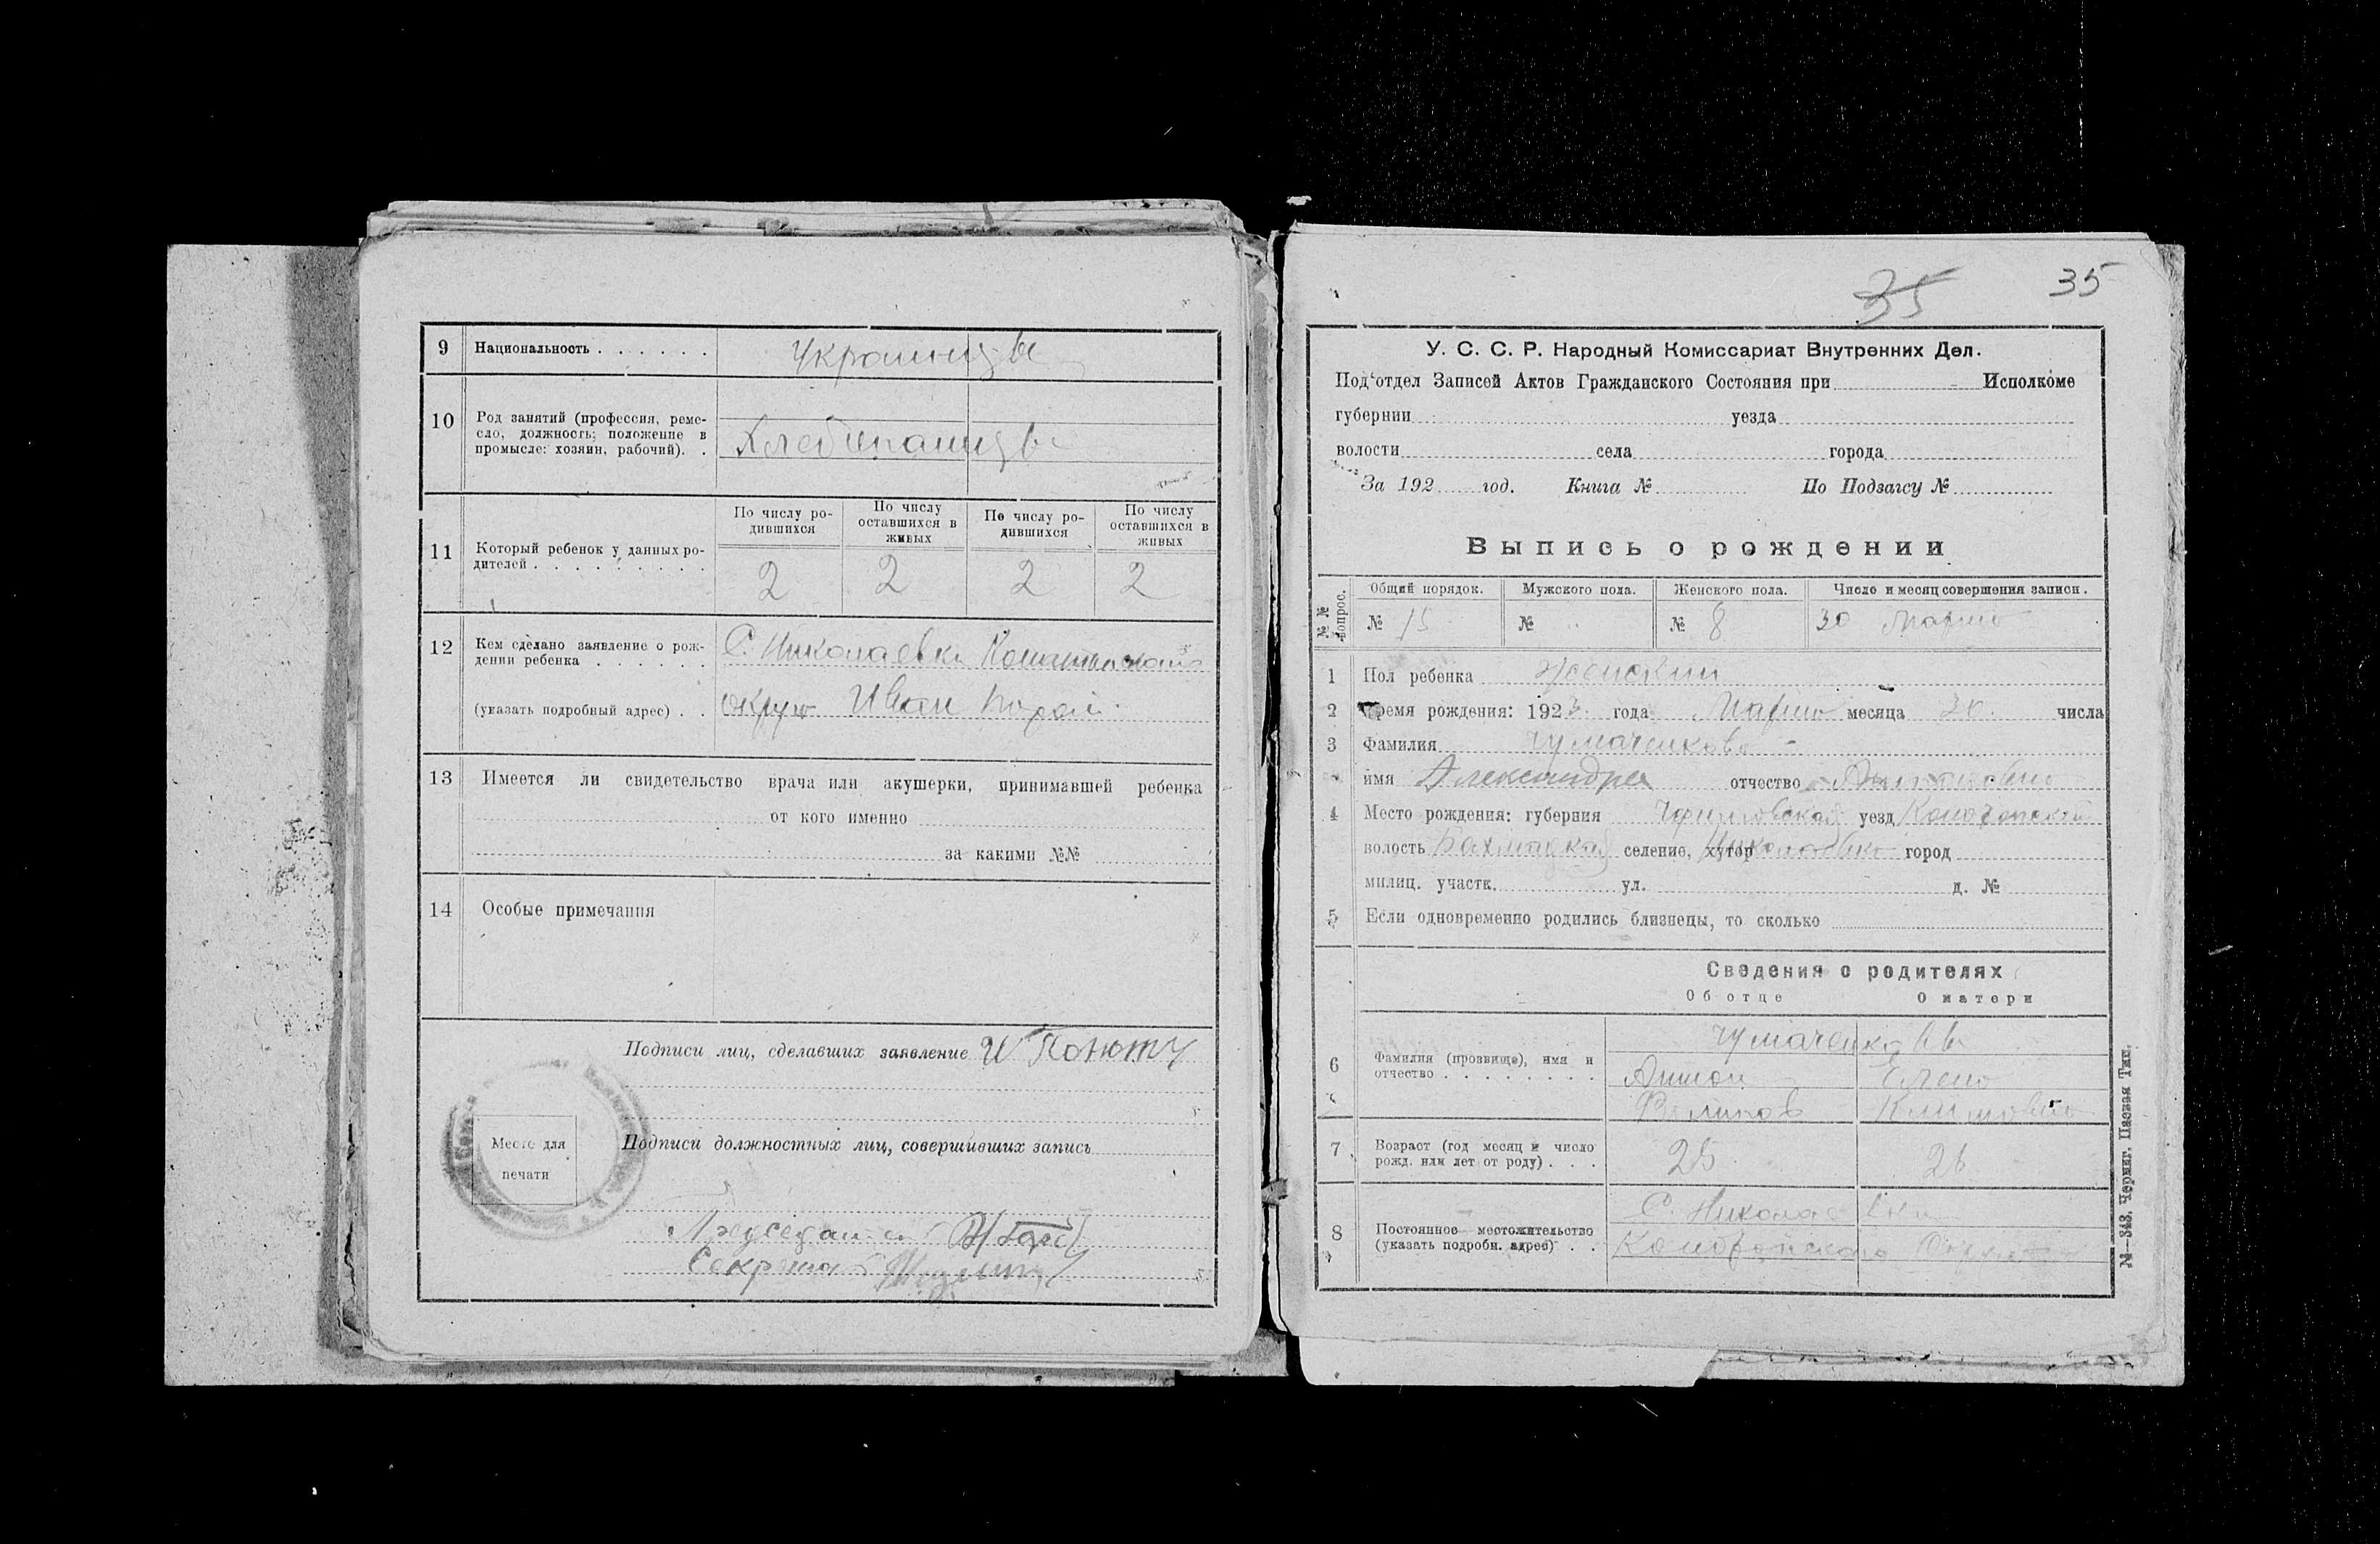 9 Национальность . . . . . . Украинцы
10 Род занятий (профессия, реме-
сло, должность; положение в
промысле: хозяин, рабочий). . Хлебопашцы
11 Который ребенок у данных ро-
дителей . . . . . . . . .
По числу ро-
дившихся
По числу
оставшихся в
живых
По числу ро-
дившихся
По числу
оставшихся в
живых
2 2 2 2
12 Кем сделано заявление о рож-
дении ребенка . . . . . . С. Николаевки
(указать подробный адрес) . . округа Иван
13 Имеется ли свидетельство врача или акушерки, принимавшей ребенка
от кого именно
за какими №№
14 Особые примечания
Подписи лиц, сделавших заявление И
Место для
печати
Подписи должностных лиц, совершивших запись
Председатель
Секретарь
35 35
У. С. С. Р. Народный Комиссариат Внутренних Дел.
Под'отдел Записей Актов Гражданского Состояния при Исполкоме
губернии уезда
волости села города
За 192 год. Книга № По Подзагсу №
Выпись о рождении
№ № вопрос.
Общий порядок. Мужского пола. Женского пола. Число и месяц совершения записи.
№ 15 № " № 8 30 Марта
1 Пол ребенка женский
2 Время рождения: 1923 года Марта месяца 30 числа
3 Фамилия Чумаченкова
имя Александра отчество Антоновна
4 Место рождения: губерния Черниговская уезд Конотопский
волость Бахмацкая селение, хутор Николаевка город
милиц. участк. ул. д. №
5 Если одновременно родились близнецы, то сколько
Сведения о родителях
Об отце О матери
6 Фамилия (прозвище), имя и
отчество . . . . . . . .
Чумаченковы
Антон Елена
Филипов Климовна
7 Возраст (год месяц и число
рожд. или лет от роду) . . . 25 26
8 Постоянное местожительство
(указать подробн. адрес) . .
С. Николаевки
Конотопского Округа
№—343. Черниг. Паевая Тип.